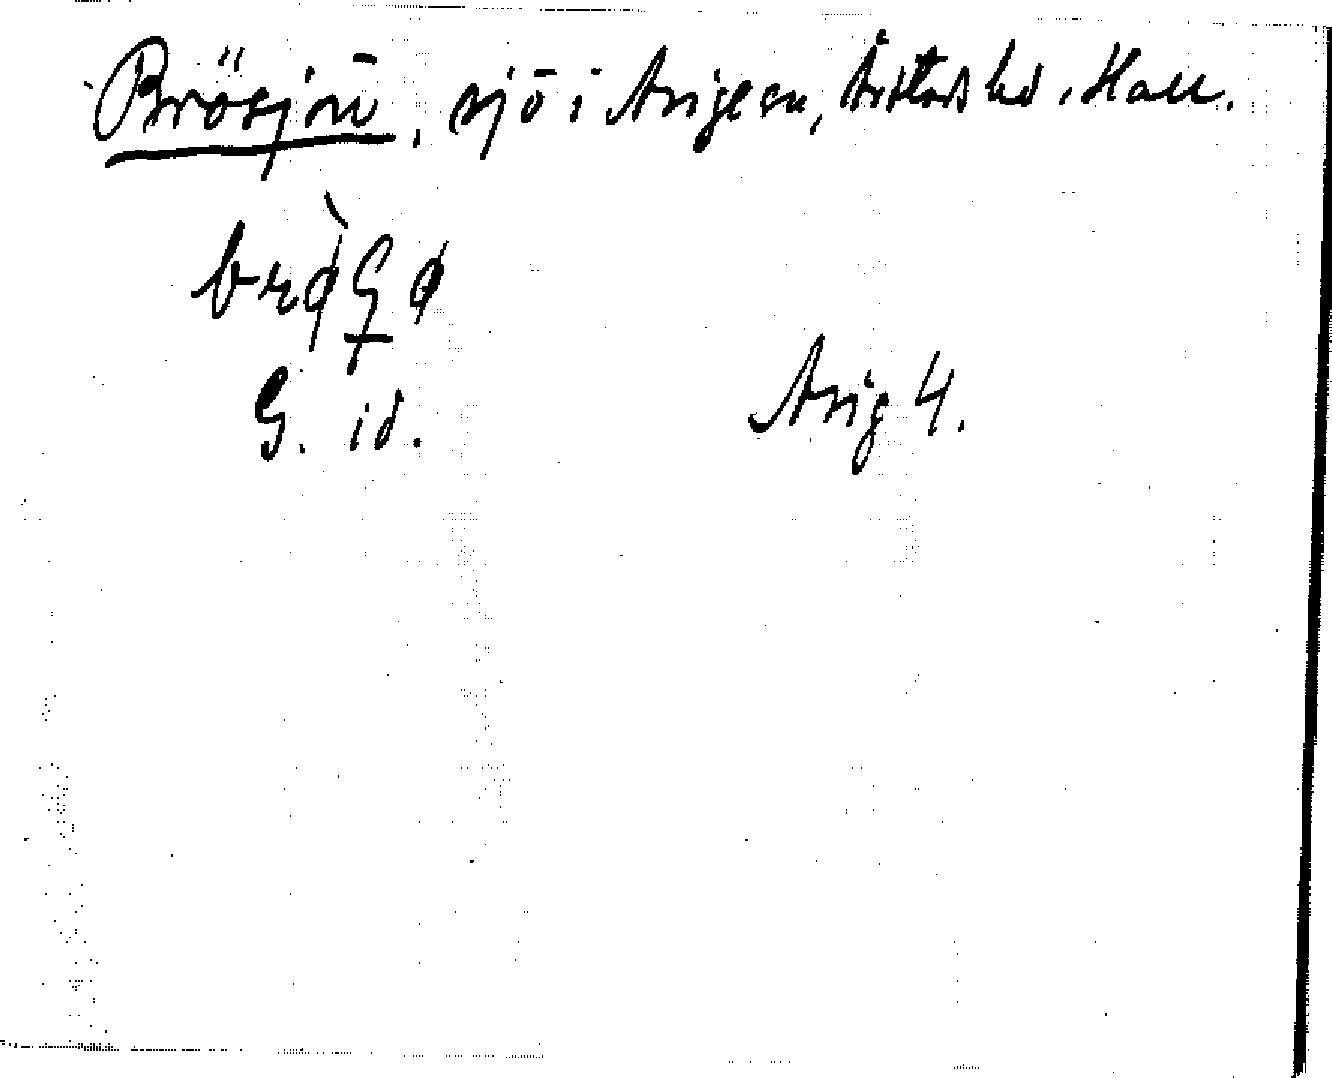 Brösjön, sjö i Asige sn, Årstads hd, Hall.
brø̀ʂø
G. id.
Asig 4.